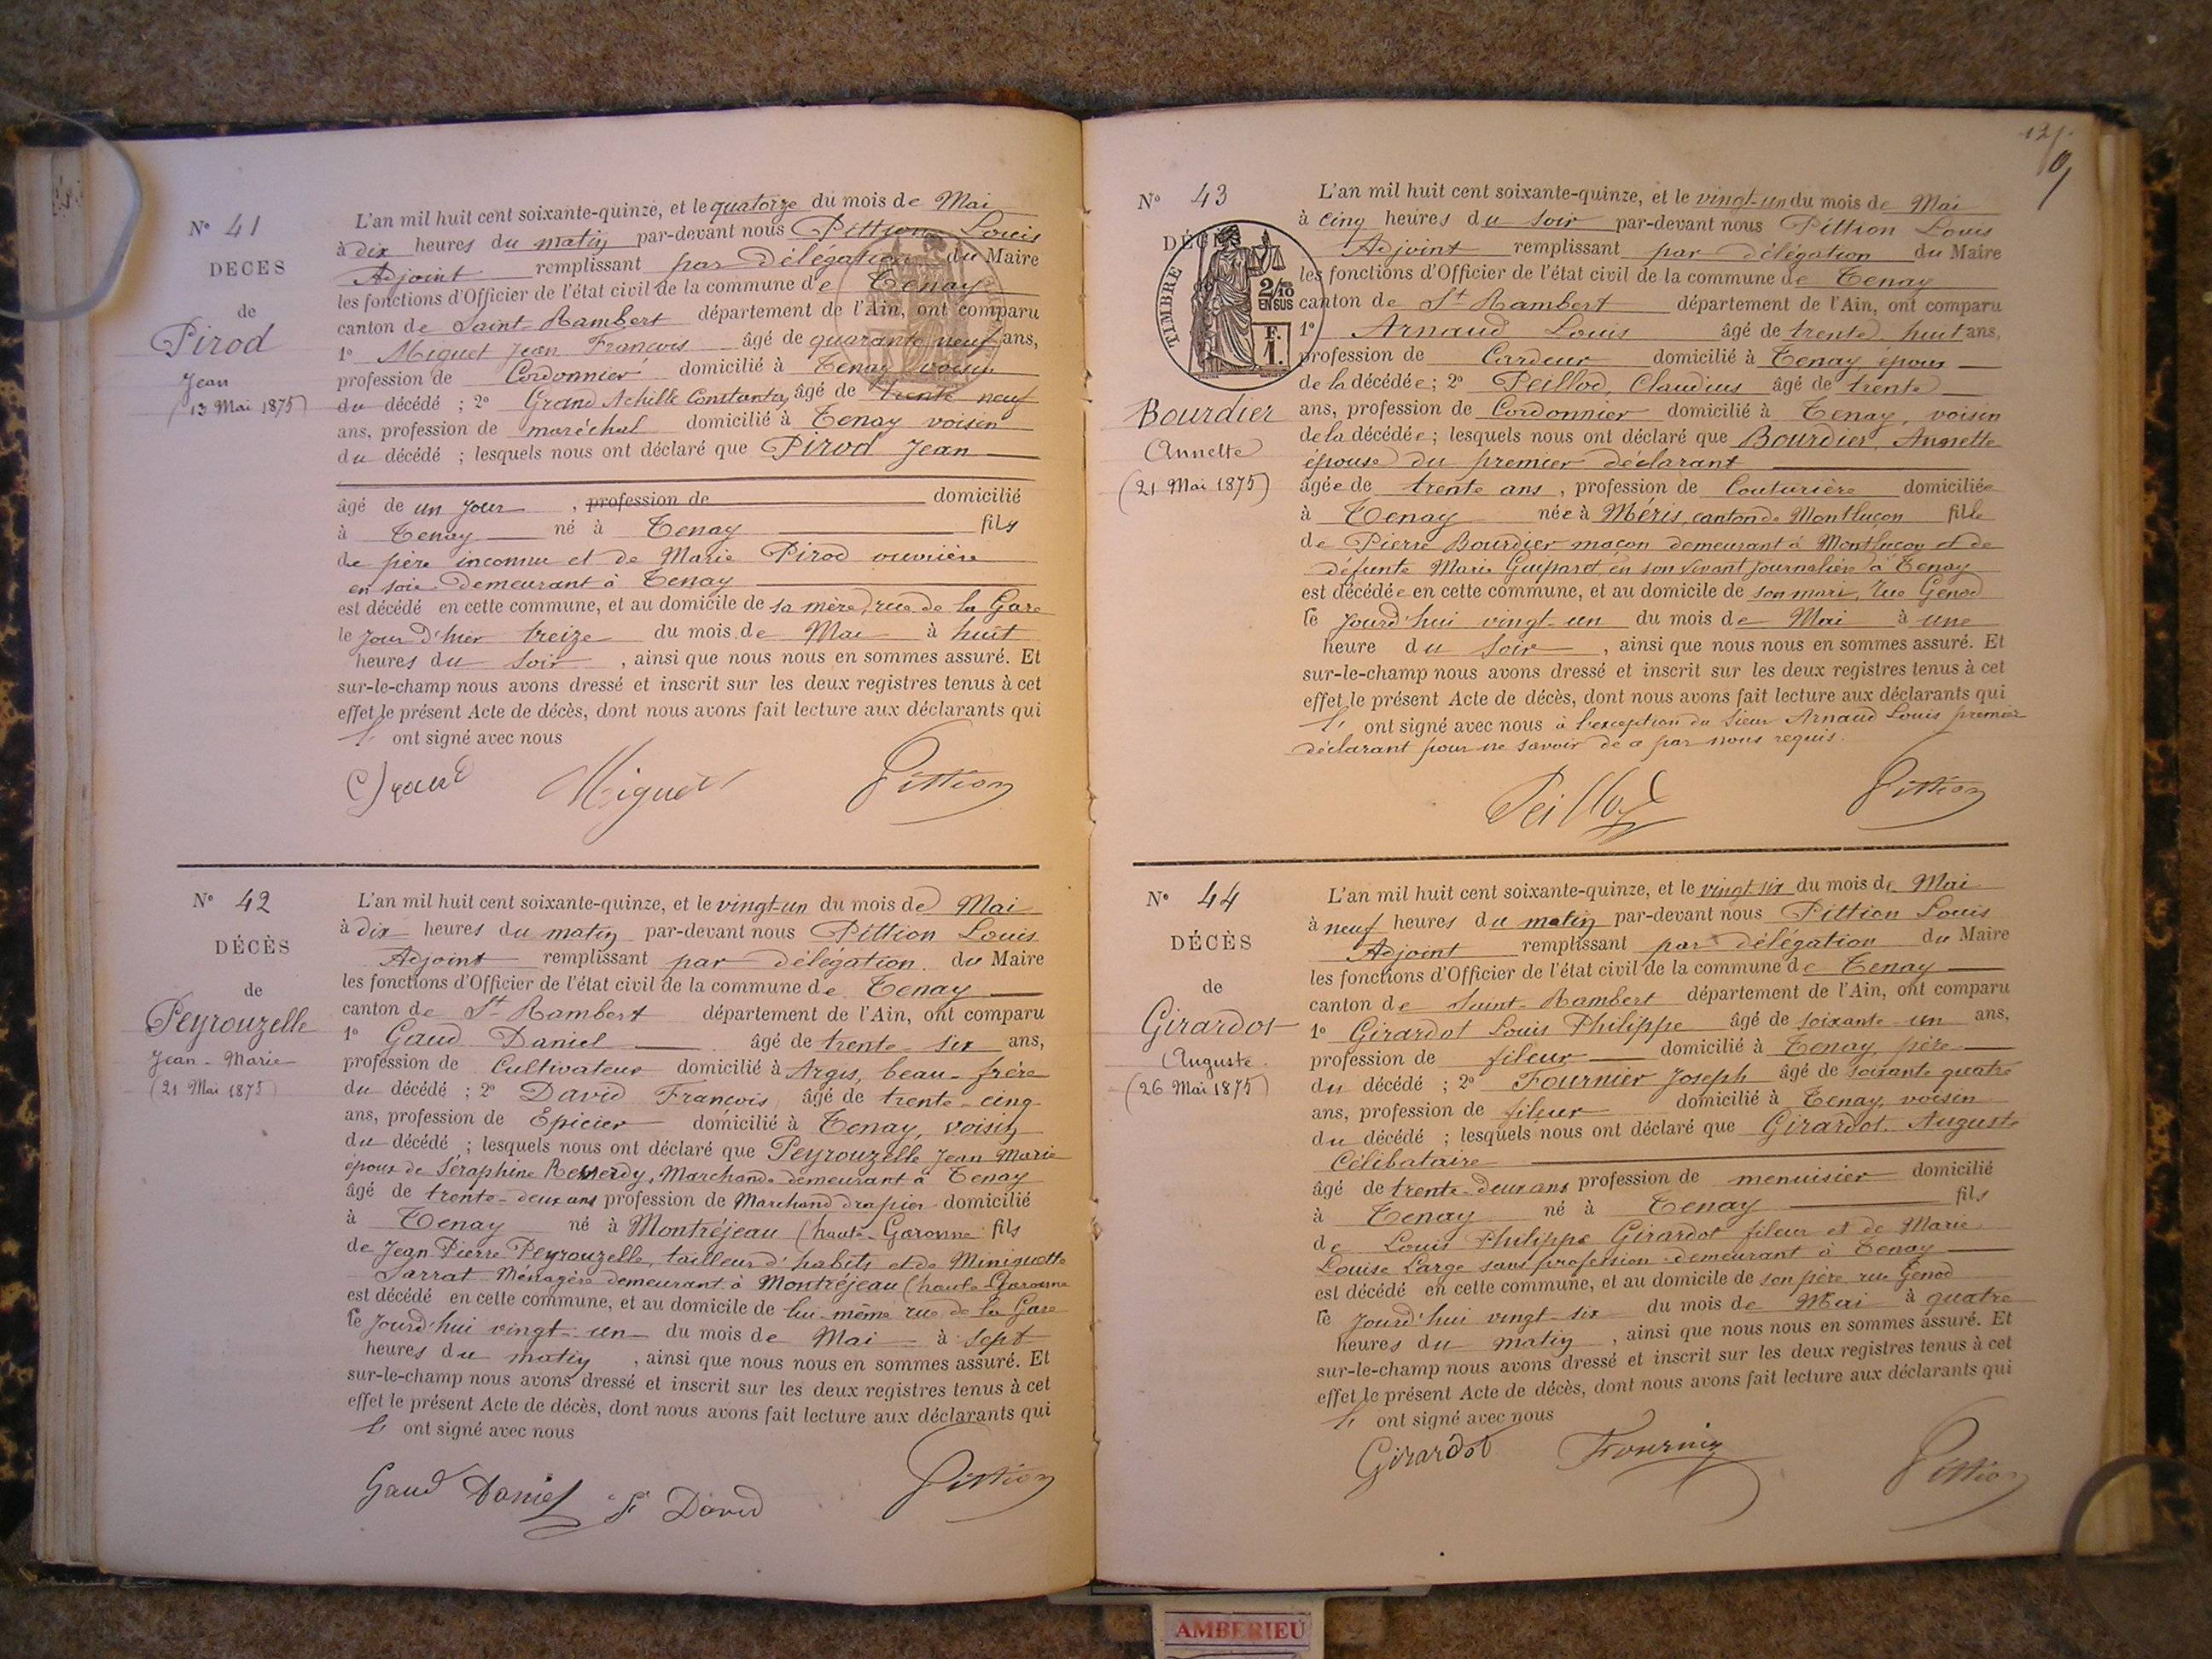 N° 41
DÉCÈS
de
Pirod
Jean
(13 Mai 1875)
L'an mil huit cent soixante-quinze, et le quatorze du mois de Mai
à dix heures du matin par-devant nous Pittion Louis
Adjoint remplissant par délégation du Maire
les fonctions d'Officier de l'état civil de la commune de Tenay
canton de Saint-Rambert département de l'Ain, ont comparu
1° Miguet Jean François âgé de quarante neuf ans,
profession de Cordonnier domicilié à Tenay voisin
du décédé ; 2° Grand Achille Constantin âgé de trente neuf
ans, profession de maréchal domicilié à Tenay voisin
du décédé ; lesquels nous ont déclaré que Pirod Jean
âgé de un jour , profession de domicilié
à Tenay né à Tenay fils
de père inconnu et de Marie Pirod ouvrière
en soie demeurant à Tenay
est décédé en cette commune, et au domicile de sa mère, rue de la Gare
le jour d'hier treize du mois de Mai à huit
heures du soir , ainsi que nous nous en sommes assuré. Et
sur-le-champ nous avons dressé et inscrit sur les deux registres tenus à cet
effet le présent Acte de décès, dont nous avons fait lecture aux déclarants qui
l' ont signé avec nous
Grand Miguet Pittion
N° 42
DÉCÈS
de
Peyrouzelle
Jean-Marie
(21 Mai 1875)
L'an mil huit cent soixante-quinze, et le vingt-un du mois de Mai
à dix heures du matin par-devant nous Pittion Louis
Adjoint remplissant par délégation du Maire
les fonctions d'Officier de l'état civil de la commune de Tenay
canton de St Rambert département de l'Ain, ont comparu
1° Gaud Daniel âgé de trente-six ans,
profession de Cultivateur domicilié à Argis, beau-frère
du décédé ; 2° David François âgé de trente-cinq
ans, profession de Epicier domicilié à Tenay, voisin
du décédé ; lesquels nous ont déclaré que Peyrouzelle Jean Marie
époux de Séraphine Reverdy, Marchande demeurant à Tenay
âgé de trente-deux ans profession de Marchand drapier domicilié
à Tenay né à Montréjeau (haute-Garonne fils
de Jean Pierre Peyrouzelle, tailleur d'habits et de Miniquette
Sarrat Ménagère demeurant à Montréjeau (haute Garonne
est décédé en cette commune, et au domicile de lui-même rue de la Gare
le jourd'hui vingt-un du mois de Mai à sept
heures du matin , ainsi que nous nous en sommes assuré. Et
sur-le-champ nous avons dressé et inscrit sur les deux registres tenus à cet
effet le présent Acte de décès, dont nous avons fait lecture aux déclarants qui
l' ont signé avec nous
Gaud Daniel F David Pittion
N° 43
DÉCÈS
TIMBRE
2/10
EN SUS
F.
1.
Bourdier
Annette
(21 Mai 1875)
L'an mil huit cent soixante-quinze, et le vingt-un du mois de Mai
à cinq heures du soir par-devant nous Pittion Louis
Adjoint remplissant par délégation du Maire
les fonctions d'Officier de l'état civil de la commune de Tenay
canton de St Rambert département de l'Ain, ont comparu
1° Arnaud Louis âgé de trente huit ans,
profession de Cardeur domicilié à Tenay époux
de la décédée ; 2° Peillod, Claudius âgé de trente
ans, profession de Cordonnier domicilié à Tenay, voisin
de la décédée ; lesquels nous ont déclaré que Bourdier, Annette
épouse du premier déclarant
âgée de trente ans , profession de Couturière domiciliée
à Tenay née à Méris, canton de Montluçon fille
de Pierre Bourdier maçon demeurant à Montluçon et de
défunte Marie en son vivant journalière à Tenay
est décédée en cette commune, et au domicile de son mari, rue Genod
le jourd'hui vingt-un du mois de Mai à une
heure du soir , ainsi que nous nous en sommes assuré. Et
sur-le-champ nous avons dressé et inscrit sur les deux registres tenus à cet
effet le présent Acte de décès, dont nous avons fait lecture aux déclarants qui
l' ont signé avec nous à l'exception du Sieur Arnaud Louis premier
déclarant pour ne savoir de ce par nous requis.
Peillod Pittion
N° 44
DÉCÈS
de
Girardot
Auguste
(26 Mai 1875)
L'an mil huit cent soixante-quinze, et le vingt-six du mois de Mai
à neuf heures du matin par-devant nous Pittion Louis
Adjoint remplissant par délégation du Maire
les fonctions d'Officier de l'état civil de la commune de Tenay
canton de Saint-Rambert département de l'Ain, ont comparu
1° Girardot Louis Philippe âgé de soixante-un ans,
profession de fileur domicilié à Tenay, père
du décédé ; 2° Fournier Joseph âgé de soixante quatre
ans, profession de fileur domicilié à Tenay, voisin
du décédé ; lesquels nous ont déclaré que Girardot Auguste
Célibataire
âgé de trente-deux ans profession de menuisier domicilié
à Tenay né à Tenay fils
de Louis Philippe Girardot fileur et de Marie
Louise Large sans profession demeurant à Tenay
est décédé en cette commune, et au domicile de son père rue Genod
le jourd'hui vingt-six du mois de Mai à quatre
heures du matin , ainsi que nous nous en sommes assuré. Et
sur-le-champ nous avons dressé et inscrit sur les deux registres tenus à cet
effet le présent Acte de décès, dont nous avons fait lecture aux déclarants qui
l' ont signé avec nous
Girardot Fournier Pittion
AMBERIEU